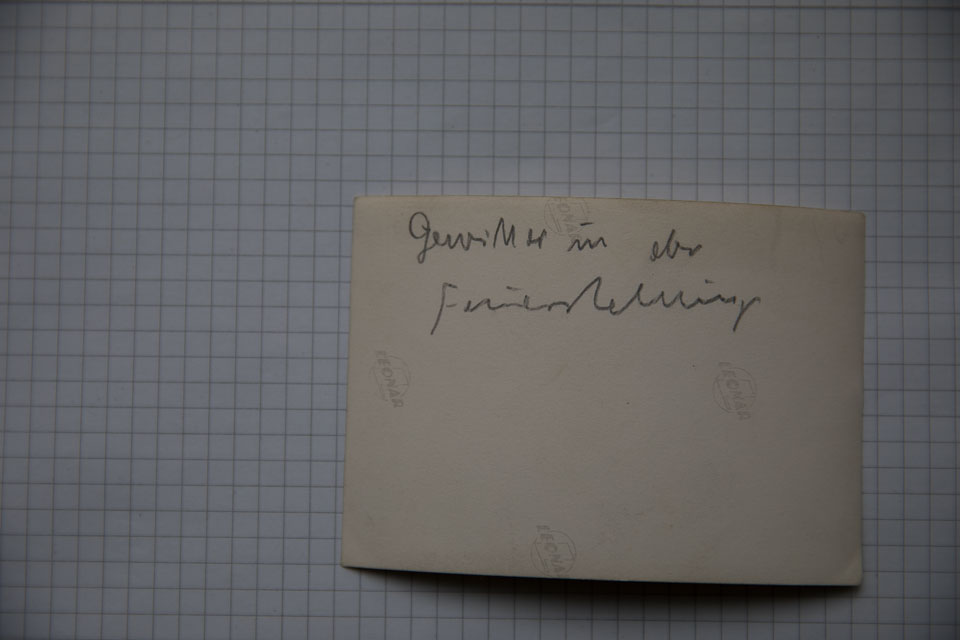 Gewitter in der
Feuerstellung
LEONAR
LEONAR
LEONAR
LEONAR